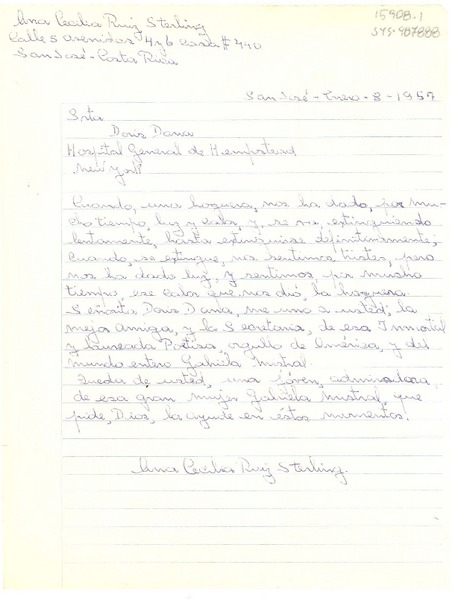 Ana Cecilia Ruiz Sterling
Calle 5 avenidas 4y6 casa # 440
San José - Costa Rica
15908-1
sys. 987888
San José - Enero - 8 - 1957
Srta
Doris Dana
Hospital General de Hempstead
New York
Cuando, una hoguera, nos ha dado, por mu-
cho tiempo, luz y calor, y se va extinguiendo
lentamente, hasta extinguirse definitivamente,
Cuando, se extingue, nos sentimos tristes, pero
nos ha dado luz, y sentimos por mucho
tiempo, ese calor que nos dió, la hoguera.
Señorita Doris Dana, me uno a usted, la
mejor Amiga, y la Secretaria, de esa Inmortal
y laureada Poetisa, orgullo de América, y del
mundo entero Gabriela Mistral.
Quedo de usted, una jóven, admiradora,
de esa gran mujer Gabriela Mistral, que
pide, Dios, la ayude en éstos momentos.
Ana Cecilia Ruiz Sterling.